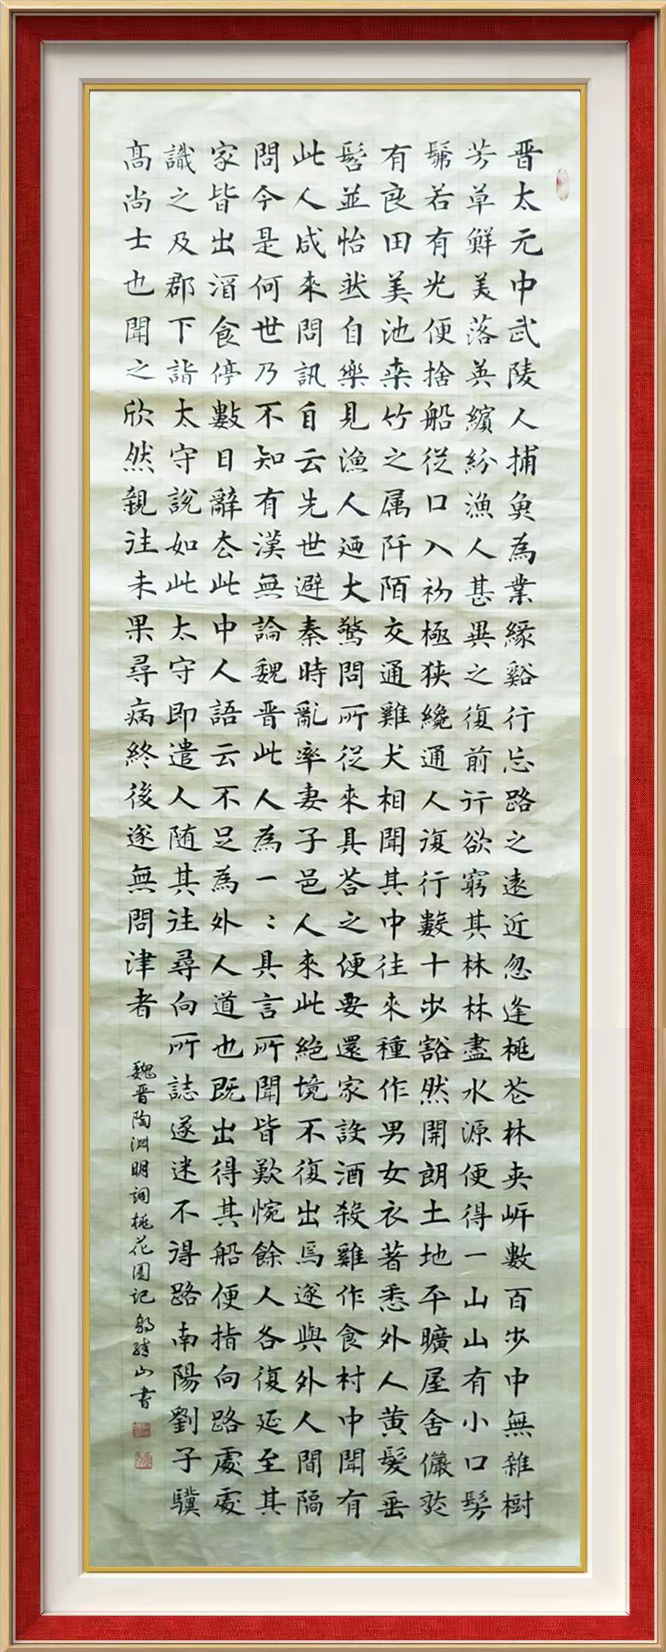 晋太元中武陵人捕魚為業緣谿行忘路之遠近忽逢桃花林夹岸數百步中無雜樹
芳草鮮美落英繽紛漁人甚異之復前行欲窮其林林盡水源便得一山山有小口髣
髴若有光便捨船從口入初極狹纔通人復行數十步豁然開朗土地平曠屋舍儼然
有良田美池桒竹之属阡陌交通雞犬相聞其中往來種作男女衣著悉外人黄髮垂
髫並怡然自樂見漁人迺大驚問所從來具荅之便要還家設酒殺雞作食村中聞有
此人咸來問訊自云先世避秦時亂率妻子邑人來此絕境不復出焉遂與外人間隔
問今是何世乃不知有漢無論魏晋此人為一〻具言所聞皆歎惋餘人各復延至其
家皆出酒食停數日辭去此中人語云不足為外人道也既出得其船便指向路處處
識之及郡下詣太守說如此太守即遣人随其往尋向所誌遂迷不得路南陽劉子驥
髙尚士也聞之欣然親往未果尋病終後遂無問津者
魏晋陶渊明詞桃花園记 山書